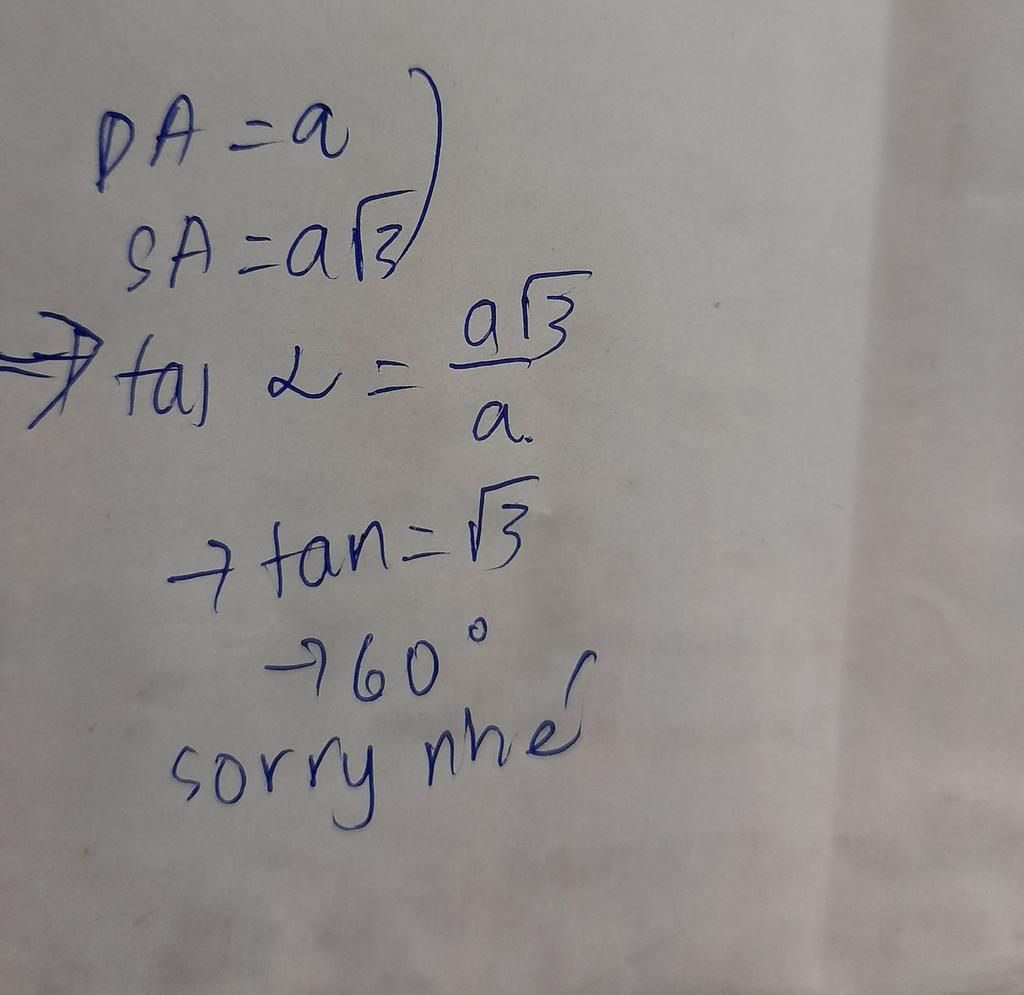 DA = a
SA = a√3
⇒ tan α = a√3 / a.
→ tan = √3
→ 60°
sorry nhé